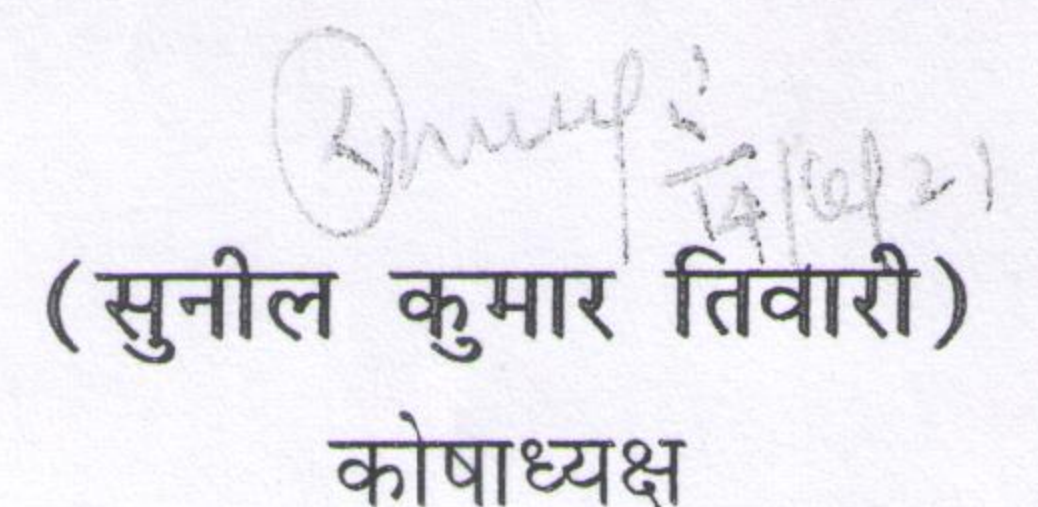 14/6/21
(सुनील कुमार तिवारी)
कोषाध्यक्ष